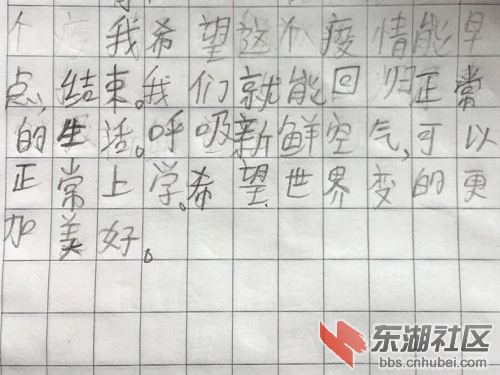 我希望这个疫情能早
点结束。我们就能回归正常
的生活。呼吸新鲜空气,可以
正常上学。希望世界变的更
加美好。
东湖社区
bbs.cnhubei.com